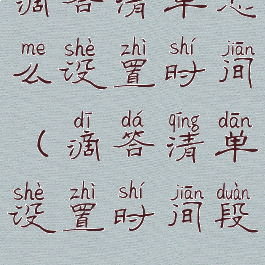 滴答清单怎
me shè zhì shí jiān
么设置时间
dī dá qīng dān
(滴答清单
shè zhì shí jiān duàn
设置时间段